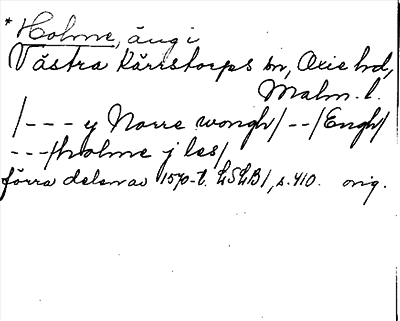 * Holme, äng i
Västra Kärrstorps sn, Oxie hd,
Malm. l.
/--- y Norre wongh/--/Engh/
---/holme j les/
förra delen av 1570-t. LSLB1, s. 410. orig.